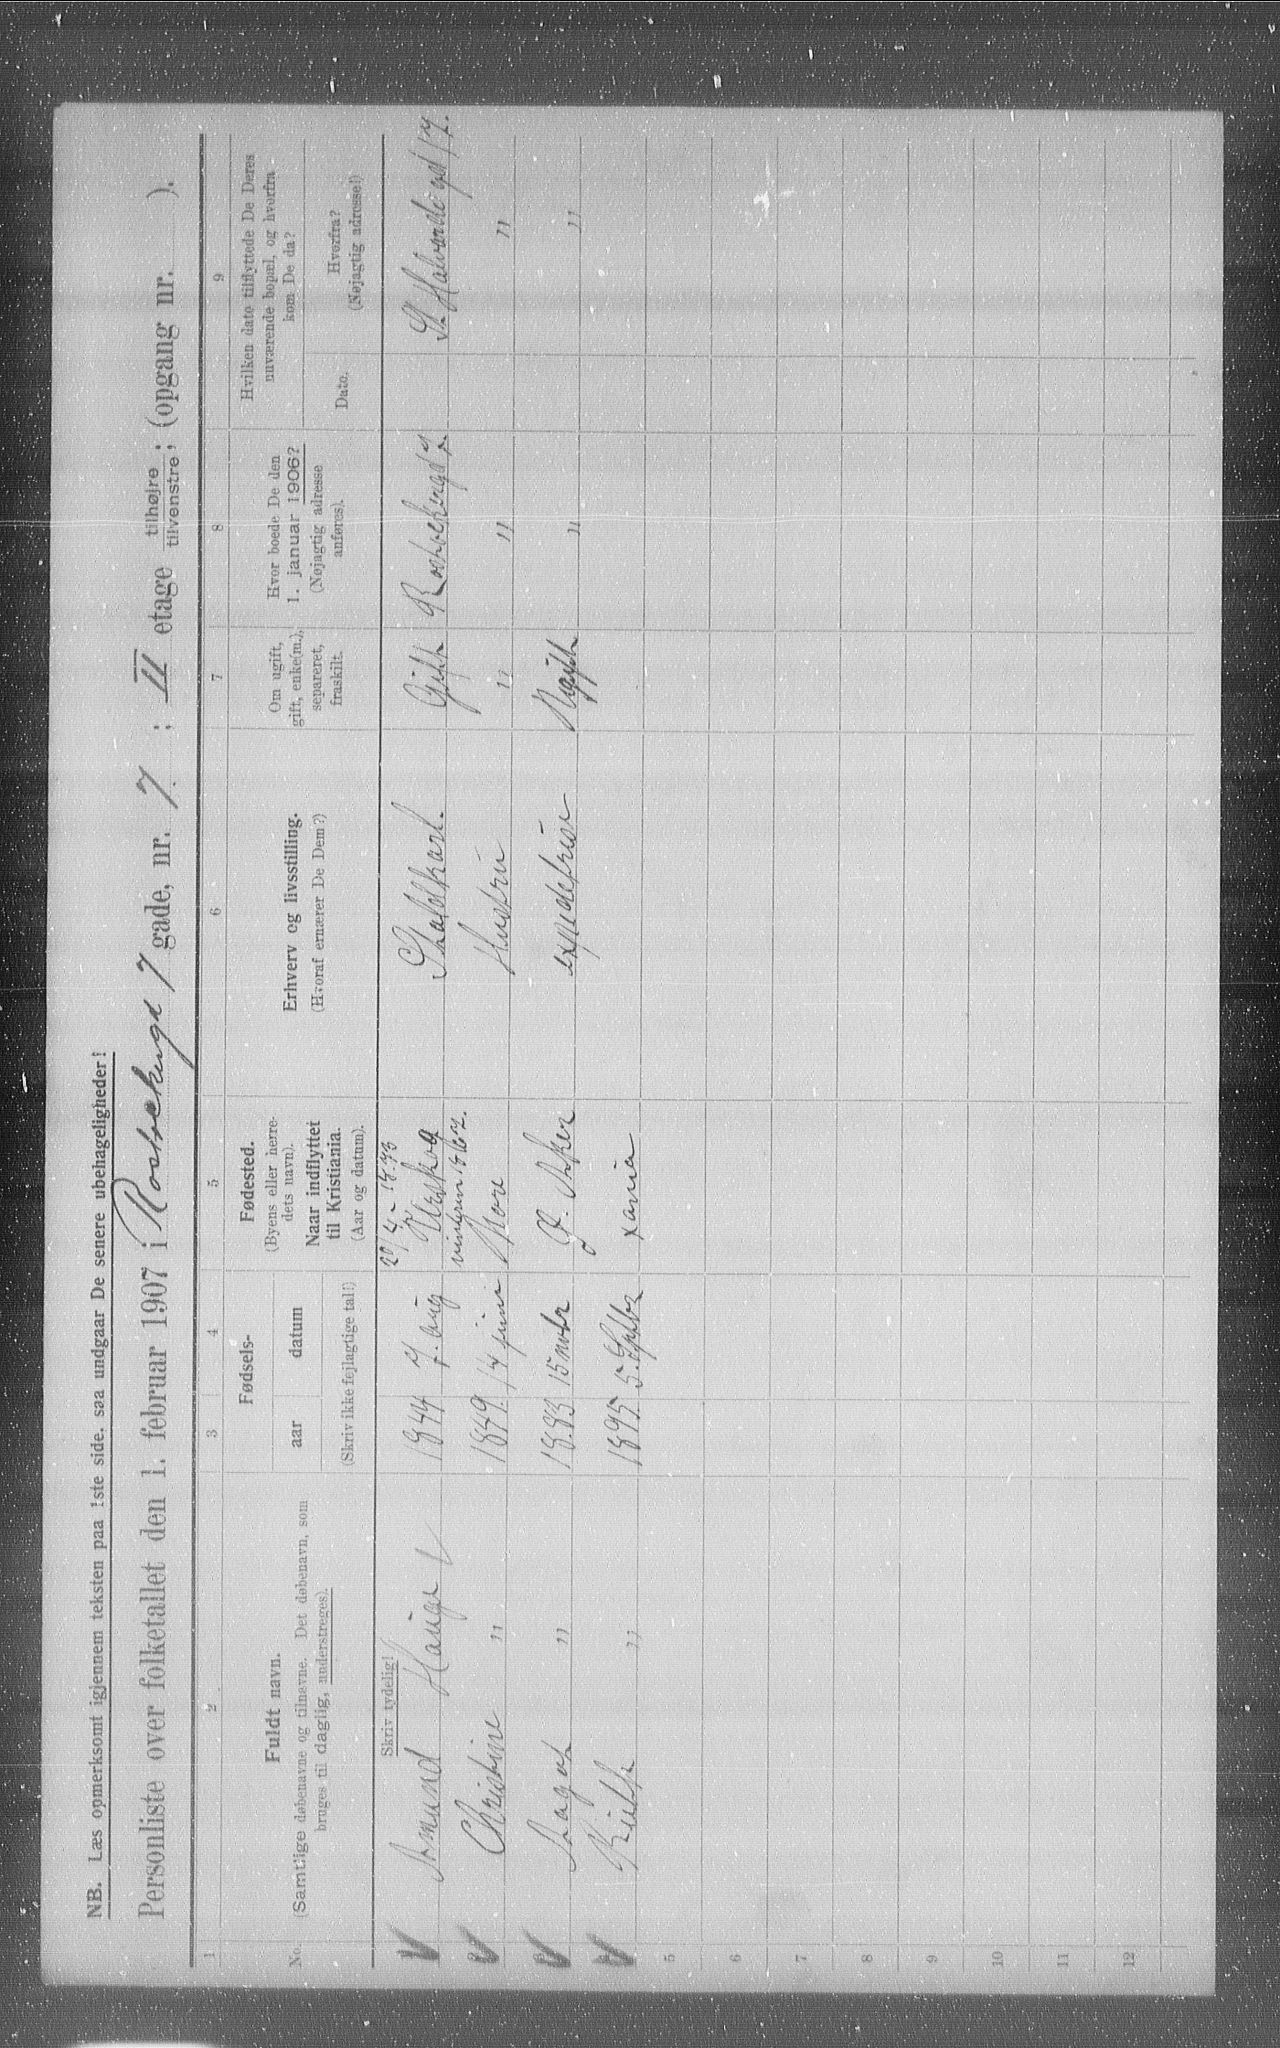 NB. Læs opmerksomt igjennem teksten paa 1ste side, saa undgaar De senere ubehageligheder!
Personliste over folketallet den 1. februar 1907 i Rostockergd 7 gade, nr. 7. ; II etage tilhøjre / tilvenstre; (opgang nr. ).
1 2 3 4 5 6 7 8 9
No. Fuldt navn. (Samtlige døbenavne og tilnavne. Det døbenavn, som bruges til daglig, understreges).
Fødsels- aar datum (Skriv ikke fejlagtige tal!)
Fødested. (Byens eller herredets navn). Naar indflyttet til Kristiania. (Aar og datum).
Erhverv og livsstilling. (Hvoraf ernærer De Dem?)
Om ugift, gift, enke(m.), separeret, fraskilt.
Hvor boede De den 1. januar 1906? (Nøjagtig adresse anføres).
Hvilken dato tilflyttede De Deres nuværende bopæl, og hvorfra kom De da?
Dato. Hvorfra? (Nøjagtig adresse!)
Skriv tydelig!
Amund Hauge 1844 7. aug Urskog Staldkarl. Gift St Halvards gd 17.
Christine " 1849. 14 juni Hustru " " "
Aagot " 1883 15 novbr Ø. Aker expeditrise Ugift " "
Ruth " 1895 5. Septbr Xania
5
6
7
8
9
10
11
12